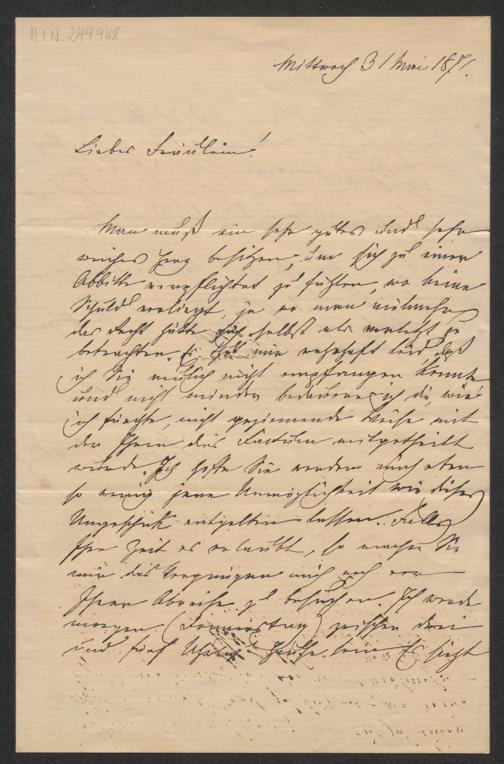 H.I.N. 249948
Mittwoch 31 Mai 1871.
Liebes Fräulein!
Man muß ein sehr gutes und sehr
weiches Herz besitzen, um sich zu einer
Abbitte verpflichtet zu fühlen, wo keine
Schuld vorliegt, ja wo man vielmehr
das Recht hätte sich selbst als verletzt zu
betrachten. Es thut mir wahrhaft leid, daß
ich Sie neulich nicht empfangen konnte
und nicht minder bedauere ich die, wie
ich fürchte, nicht geziemende Weise mit
der Ihnen das Factum mitgetheilt
wurde. Ich hoffe Sie werden mich eben
so wenig jene Unmöglichkeit wie dieses
Ungeschick entgelten lassen. Falls
Ihre Zeit es erlaubt, so machen Sie
mir das Vergnügen mich noch vor
Ihrer Abreise zu besuchen. Ich werde
morgen (Donnerstag) zwischen drei
und fünf Uhr zu Hause sein. Es liegt